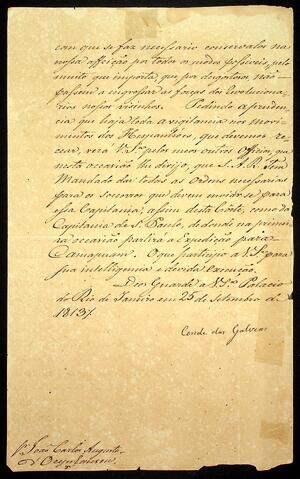 com que se faz necessario conservalos na
nossa affeição por todos os modos possiveis, pelo
muito que importa, que por degostosos não
passem a engrossar as forças dos Revolucona-
rios nossos visinhos. Pedindo a pruden-
cia que haja toda a vigilancia nos movi-
mentos dos Hespanhóes, que devemos re-
cear, verá V. S.ª pelos meus outros Officios, que
nesta occasião lhe dirijo, que S. A. R. Tem
Mandado dar todas as Ordens necessarias
para os socorros que devem enviar-se para
essa Capitania; assim desta Côrte, como da
Capitania de S. Paulo, de donde na primei-
ra occasião partirá a Expedição para
Camapuam. O que participo a V. S.ª para
sua intelligencia e devida execução.
Deos Guarde a V. S.ª Palacio
do Rio de Janeiro em 25 de Setembro de
1813.
Conde das Galveas
Sr. João Carlos Augusto
d'Oeynhausen